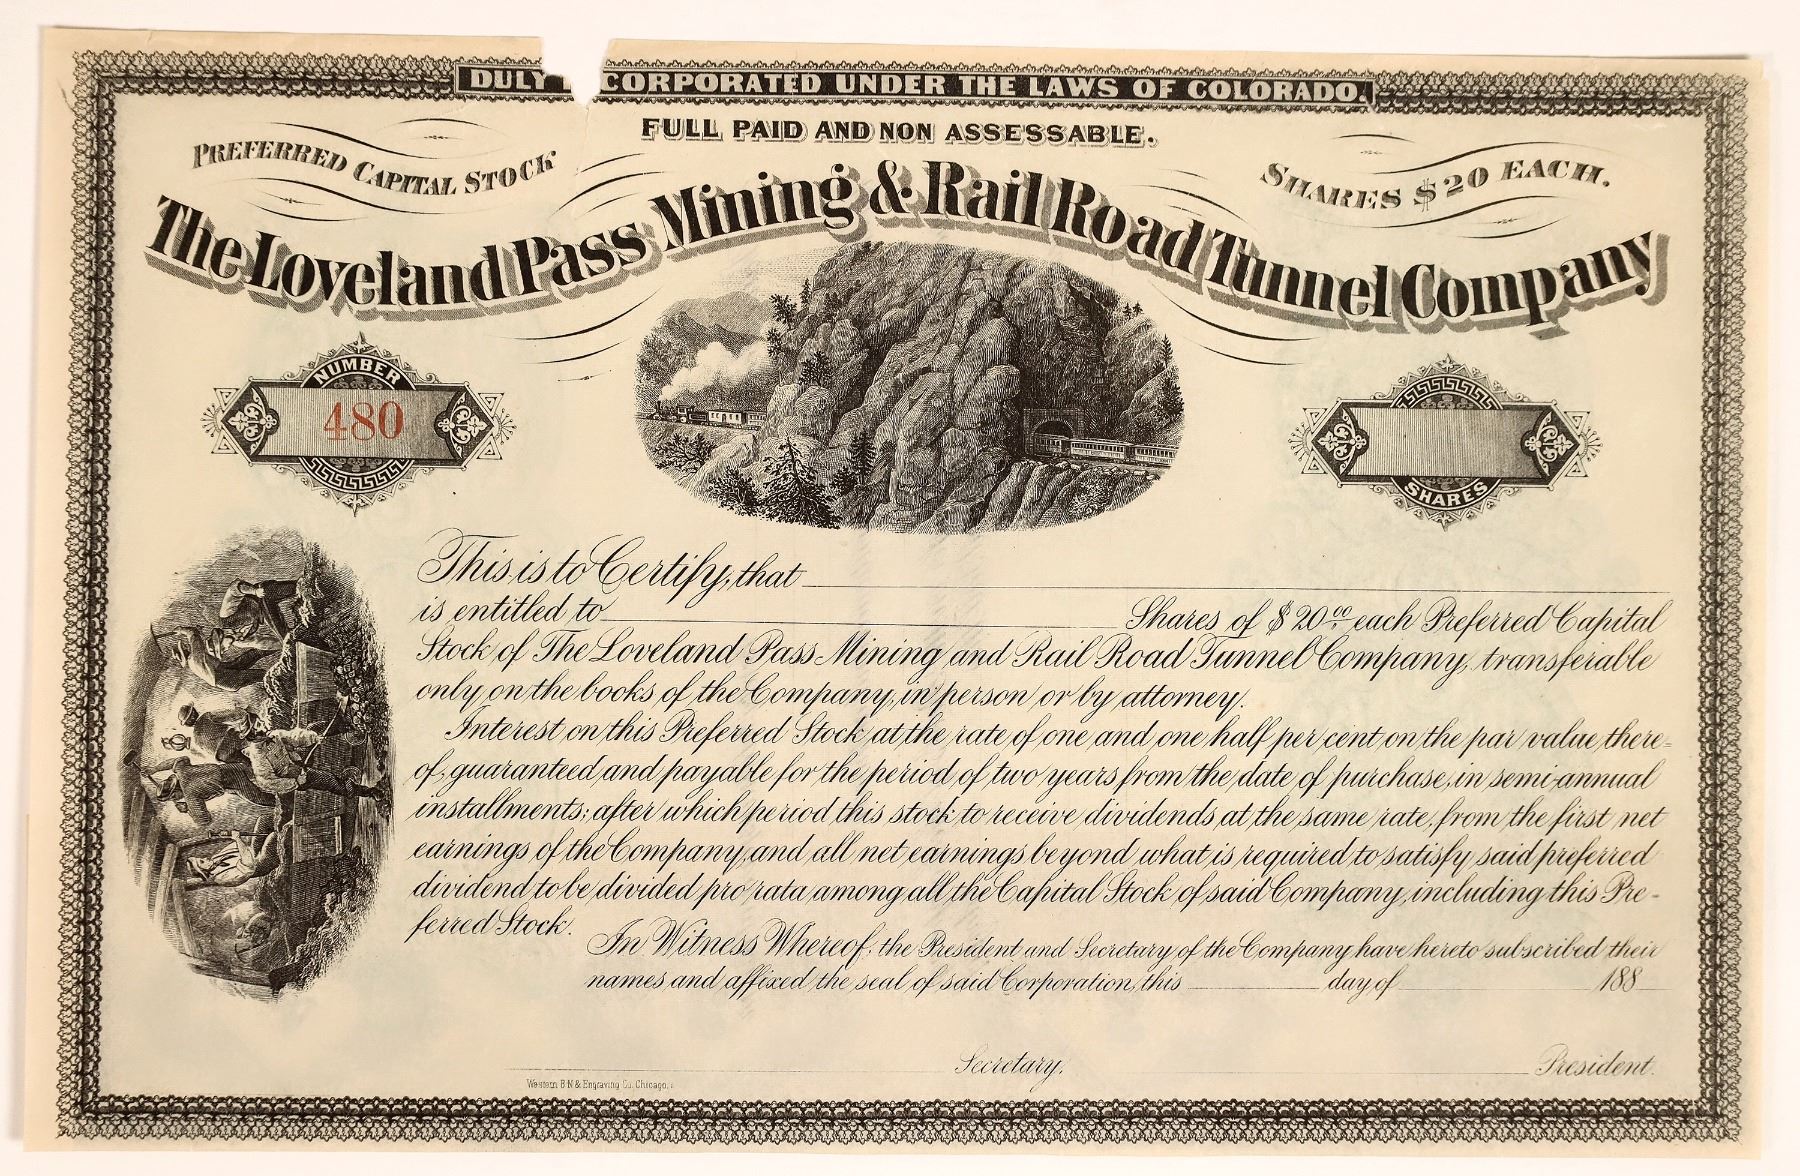 DULY I CORPORATED UNDER THE LAWS OF COLORADO.
FULL PAID AND NON ASSESSABLE.
PREFERRED CAPITAL STOCK
SHARES $20 EACH.
The Loveland Pass Mining & Rail Road Tunnel Company
NUMBER
480
SHARES
This is to Certify, that
is entitled to Shares of $20.00 each Preferred Capital
Stock of The Loveland Pass Mining and Rail Road Tunnel Company, transferable
only on the books of the Company, in person or by attorney.
Interest on this Preferred Stock at the rate of one and one half per cent on the par value there=
of, guaranteed and payable for the period of two years from the date of purchase, in semi-annual
installments; after which period this stock to receive dividends at the same rate, from the first net
earnings of the Company, and all net earnings beyond what is required to satisfy said preferred
dividend to be divided pro rata among all the Capital Stock of said Company, including this Pre-
ferred Stock.
In Witness Whereof, the President and Secretary of the Company have hereto subscribed their
names and affixed the seal of said Corporation, this day of 188
Secretary.
President.
Western B.N & Engraving Co. Chicago.